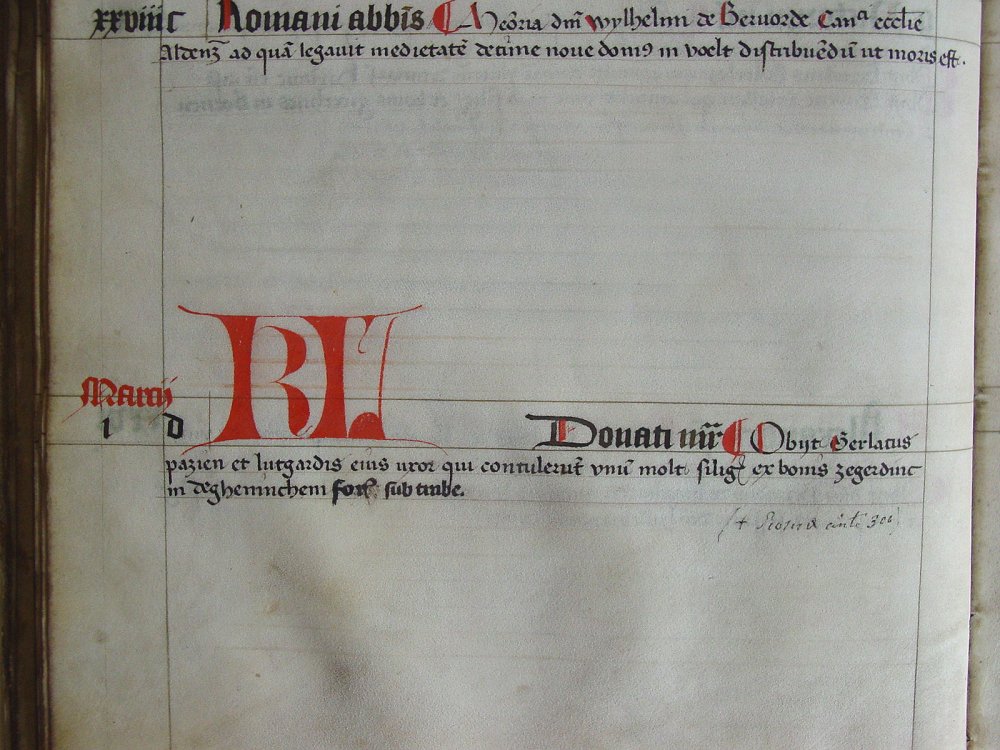 xxviii c Romani abbīs Meōria dnī wylhelmi de Beruorde Canᵃ ecclīe
Aldenȝ ad quā legauit medietatē decime noue domꝰ in voelt distribuēdū ut moris est.
KL
Marcij
i d Donati mr̄ Obijt Gerlatus
pazien et lutgardis eius vxor qui contulerūt vnū molt silig ex bonis zegerdinc
in degheminchem sub